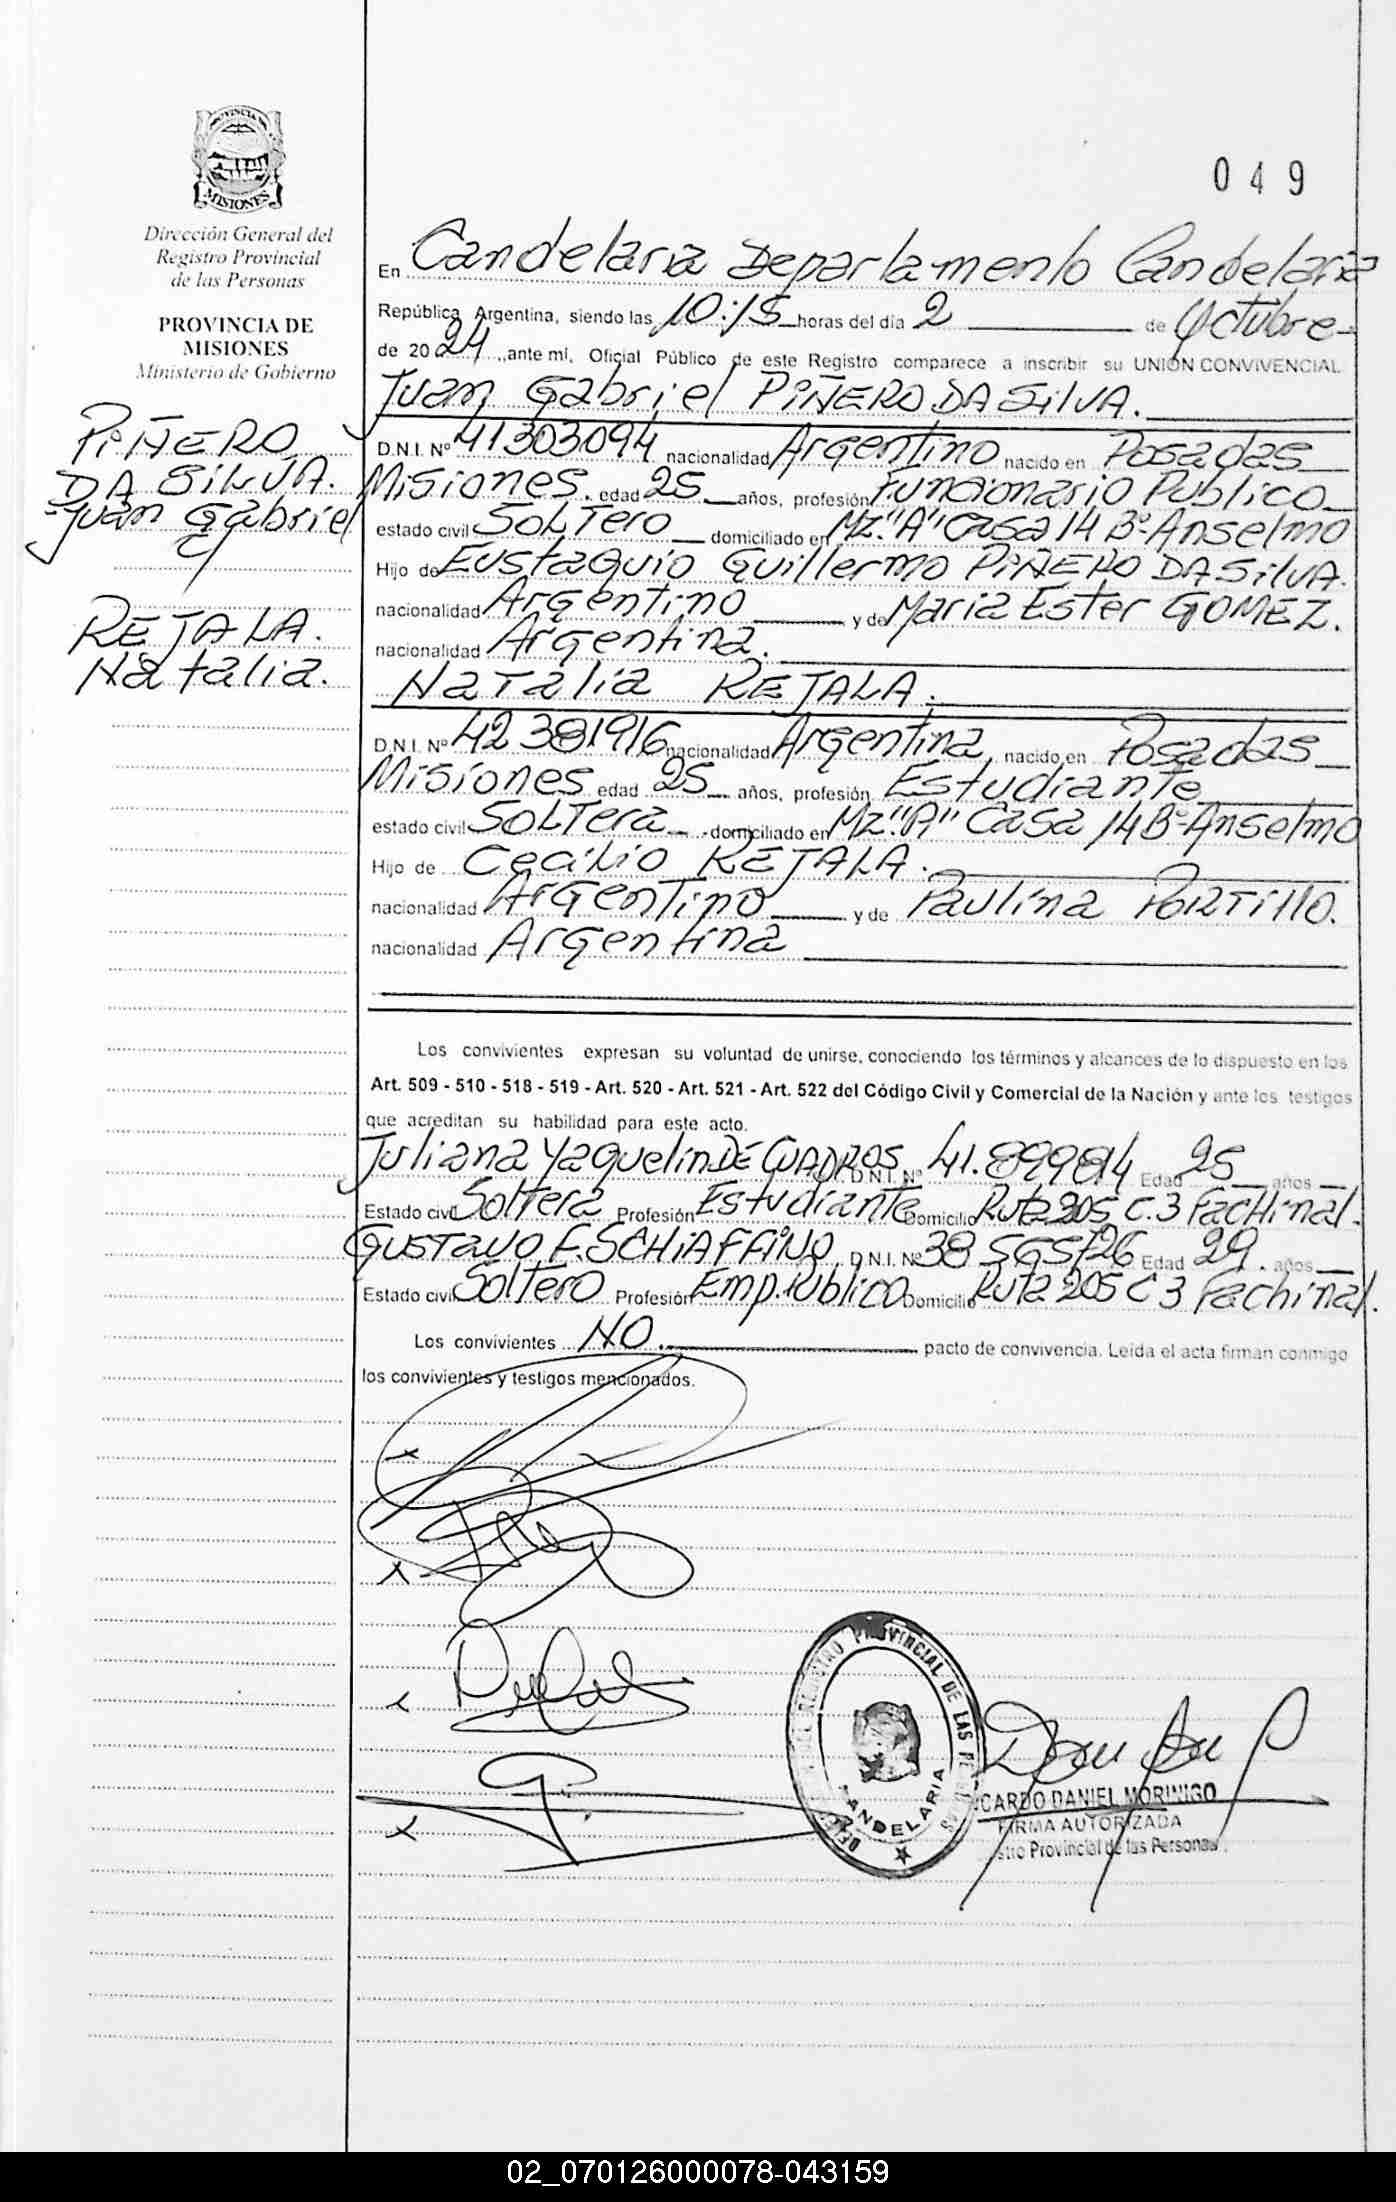 PROVINCIA DE
MISIONES
Dirección General del
Registro Provincial
de las Personas
PROVINCIA DE
MISIONES
Ministerio de Gobierno
PIÑERO
DA SILVA.
Juan Gabriel
REJALA.
Natalia.
049
En Candelaria Departamento Candelaria
República Argentina, siendo las 10:15 horas del día 2 de Octubre
de 2024, ante mí, Oficial Público de este Registro comparece a inscribir su UNIÓN CONVIVENCIAL
Juan Gabriel PIÑERO DA SILVA.
D.N.I. Nº 41303094 nacionalidad Argentino nacido en Posadas
Misiones. edad 25 años, profesión Funcionario Publico
estado civil Soltero domiciliado en Mz "A" Casa 14 Bº Anselmo
Hijo de Eustaquio Guillermo PIÑERO DA SILVA.
nacionalidad Argentino y de Maria Ester GOMEZ.
nacionalidad Argentina.
Natalia REJALA.
D.N.I. Nº 42381916 nacionalidad Argentina nacido en Posadas
Misiones edad 25 años, profesión Estudiante
estado civil Soltera domiciliado en Mz "A" Casa 14 Bº Anselmo
Hijo de Cecilio REJALA.
nacionalidad Argentino y de Paulina PORTILLO.
nacionalidad Argentina
Los convivientes expresan su voluntad de unirse, conociendo los términos y alcances de lo dispuesto en los
Art. 509 - 510 - 518 - 519 - Art. 520 - Art. 521 - Art. 522 del Código Civil y Comercial de la Nación y ante los testigos
que acreditan su habilidad para este acto.
Juliana Yaquelin DE CUADROS D.N.I. Nº 41.899814 Edad 25 años
Estado civil Soltera Profesión Estudiante Domicilio Ruta 205 C.3 Fachinal.
GUSTAVO F. SCHIAFFINO D.N.I. Nº 38565726 Edad 29. años
Estado civil Soltero Profesión Emp. Público Domicilio Ruta 205 C 3 Fachinal.
Los convivientes NO. pacto de convivencia. Leída el acta firman conmigo
los convivientes y testigos mencionados.
REGISTRO PROVINCIAL DE LAS PERSONAS
CANDELARIA
CARDO DANIEL MORINIGO
FIRMA AUTORIZADA
stro Provincial de las Personas
02_070126000078-043159